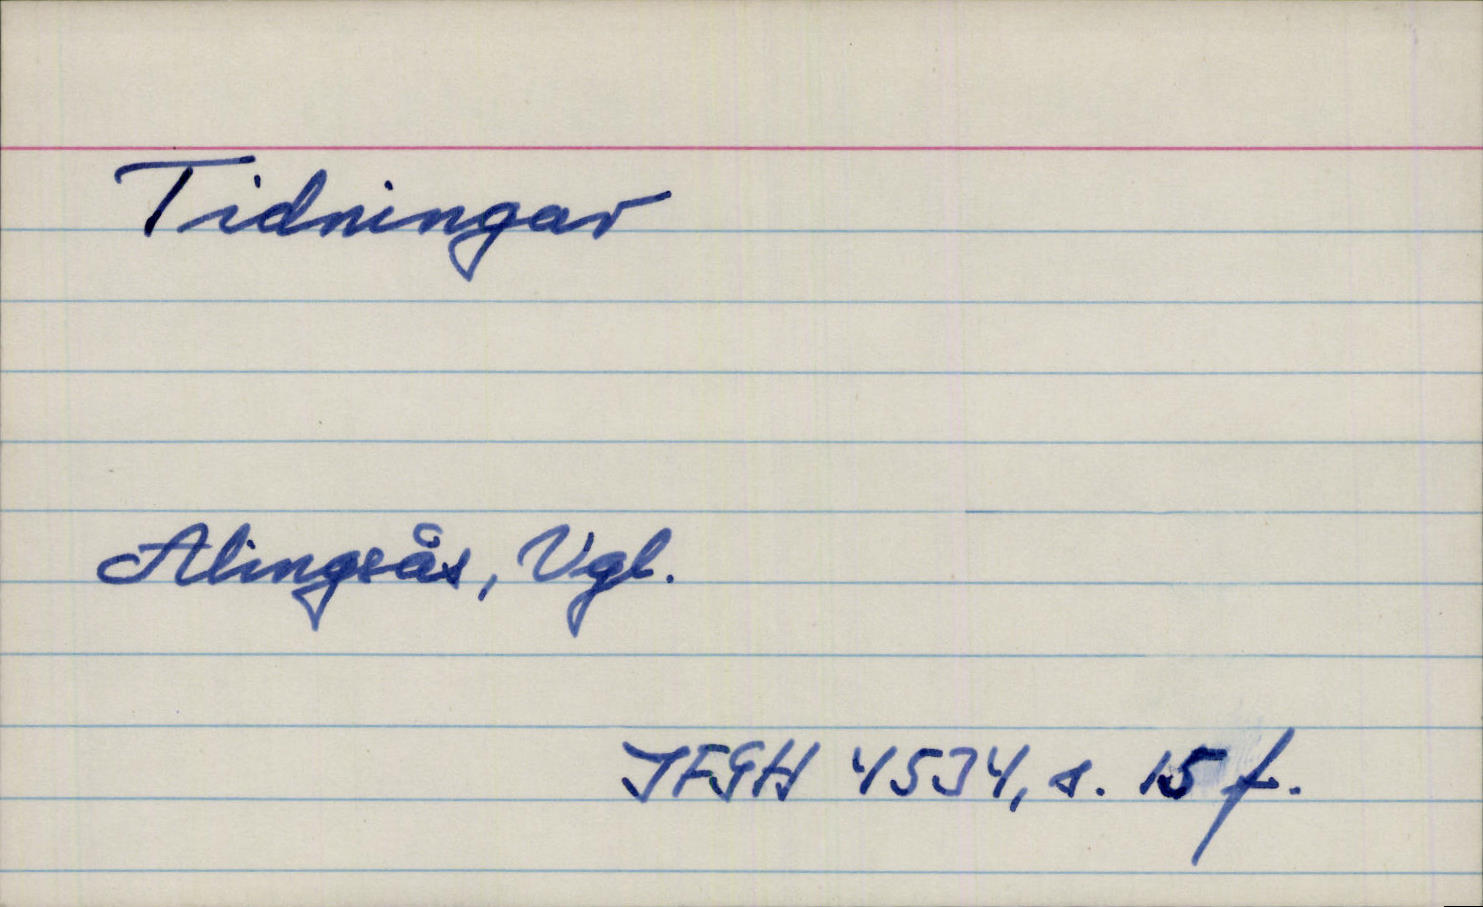 Tidningar
Alingsås, Vgl.
IFGH 4534, s. 15 f.